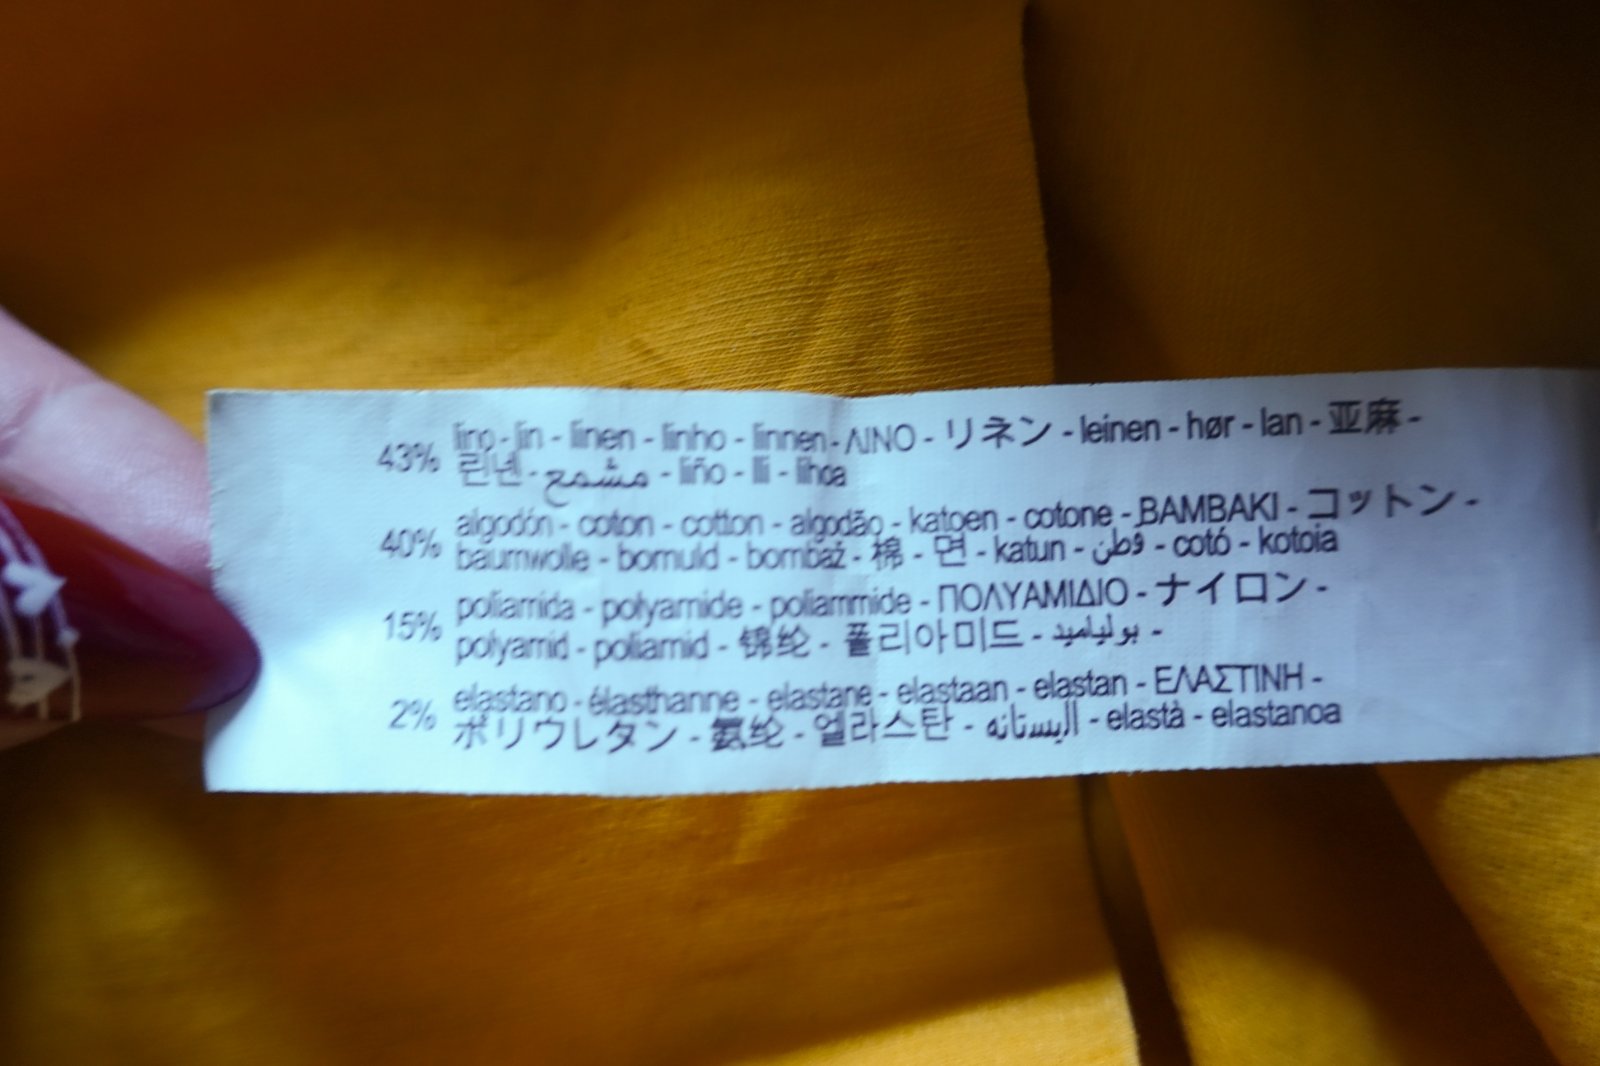 43% lino - lin - linen - linho - linnen - ΛΙΝΟ - リネン - leinen - hør - lan - 亚麻 -
린넨 - مشمع - liño - lli - lihoa
40% algodón - coton - cotton - algodão - katoen - cotone - BAMBAKI - コットン -
baumwolle - bomuld - bombaž - 棉 - 면 - katun - قطن - cotó - kotoia
15% poliamida - polyamide - poliammide - ΠΟΛΥΑΜΙΔΙΟ - ナイロン -
polyamid - poliamid - 锦纶 - 폴리아미드 - بولياميد -
2% elastano - élasthanne - elastane - elastaan - elastan - ΕΛΑΣΤΙΝΗ -
ポリウレタン - 氨纶 - 엘라스탄 - اليستانه - elastà - elastanoa